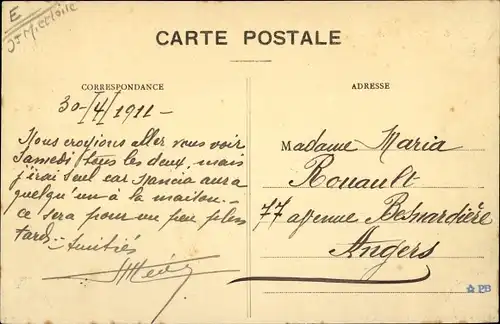 E
CARTE POSTALE
CORRESPONDANCE
30-/4/1911-
Nous croyions aller vous voir
Samedi tous les deux, mais
j'irai seul car Mancia aura
quelqu'un à la maison.-
ce sera pour un peu plus
tard.- Amitiés
ADRESSE
Madame Maria
Rouault
77 avenue Besnardière
Angers
PB